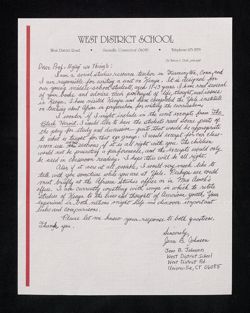 WEST DISTRICT SCHOOL
West District Road
Telephone
Dear Prof. Ngũgĩ wa Thiong'o:
I am a social studies resource teacher in Farmington, Conn. and
I am responsible for writing a unit on Kenya. It is designed for
our young middle-school students, aged 11-13 years. I have read several
of your books and admire their portrayal of life, thought, and issues
in Kenya. I have visited Kenya and have completed the Yale institute
on teaching about Africa in preparation for writing the curriculum.
I wonder if I might include in the unit excerpts from The
Black Hermit. I would like to have the students read those parts of
the play for study and discussion - parts that would be appropriate
to what is taught for that age group. I would excerpt for our class-
room use sections if it is all right with you. The children
would not be presenting a performance, and the excerpts would only
be used in classroom reading. I hope this will be all right.
Also, if it were at all possible, I would very much like to
talk with you sometime while you are at Yale. Perhaps we could
meet briefly at the African Studies office or in New Lond's
office. I am currently working with ways in which to relate
studies of Kenya to the lives and thought of American youth. Your
experience in both nations might help me discover important
links and comparisons.
Please let me know your response to both questions.
Thank you.
Sincerely,
Jane B. Johnson
Jane B. Johnson
West District School
West District Rd.
Unionville, CT. 06085